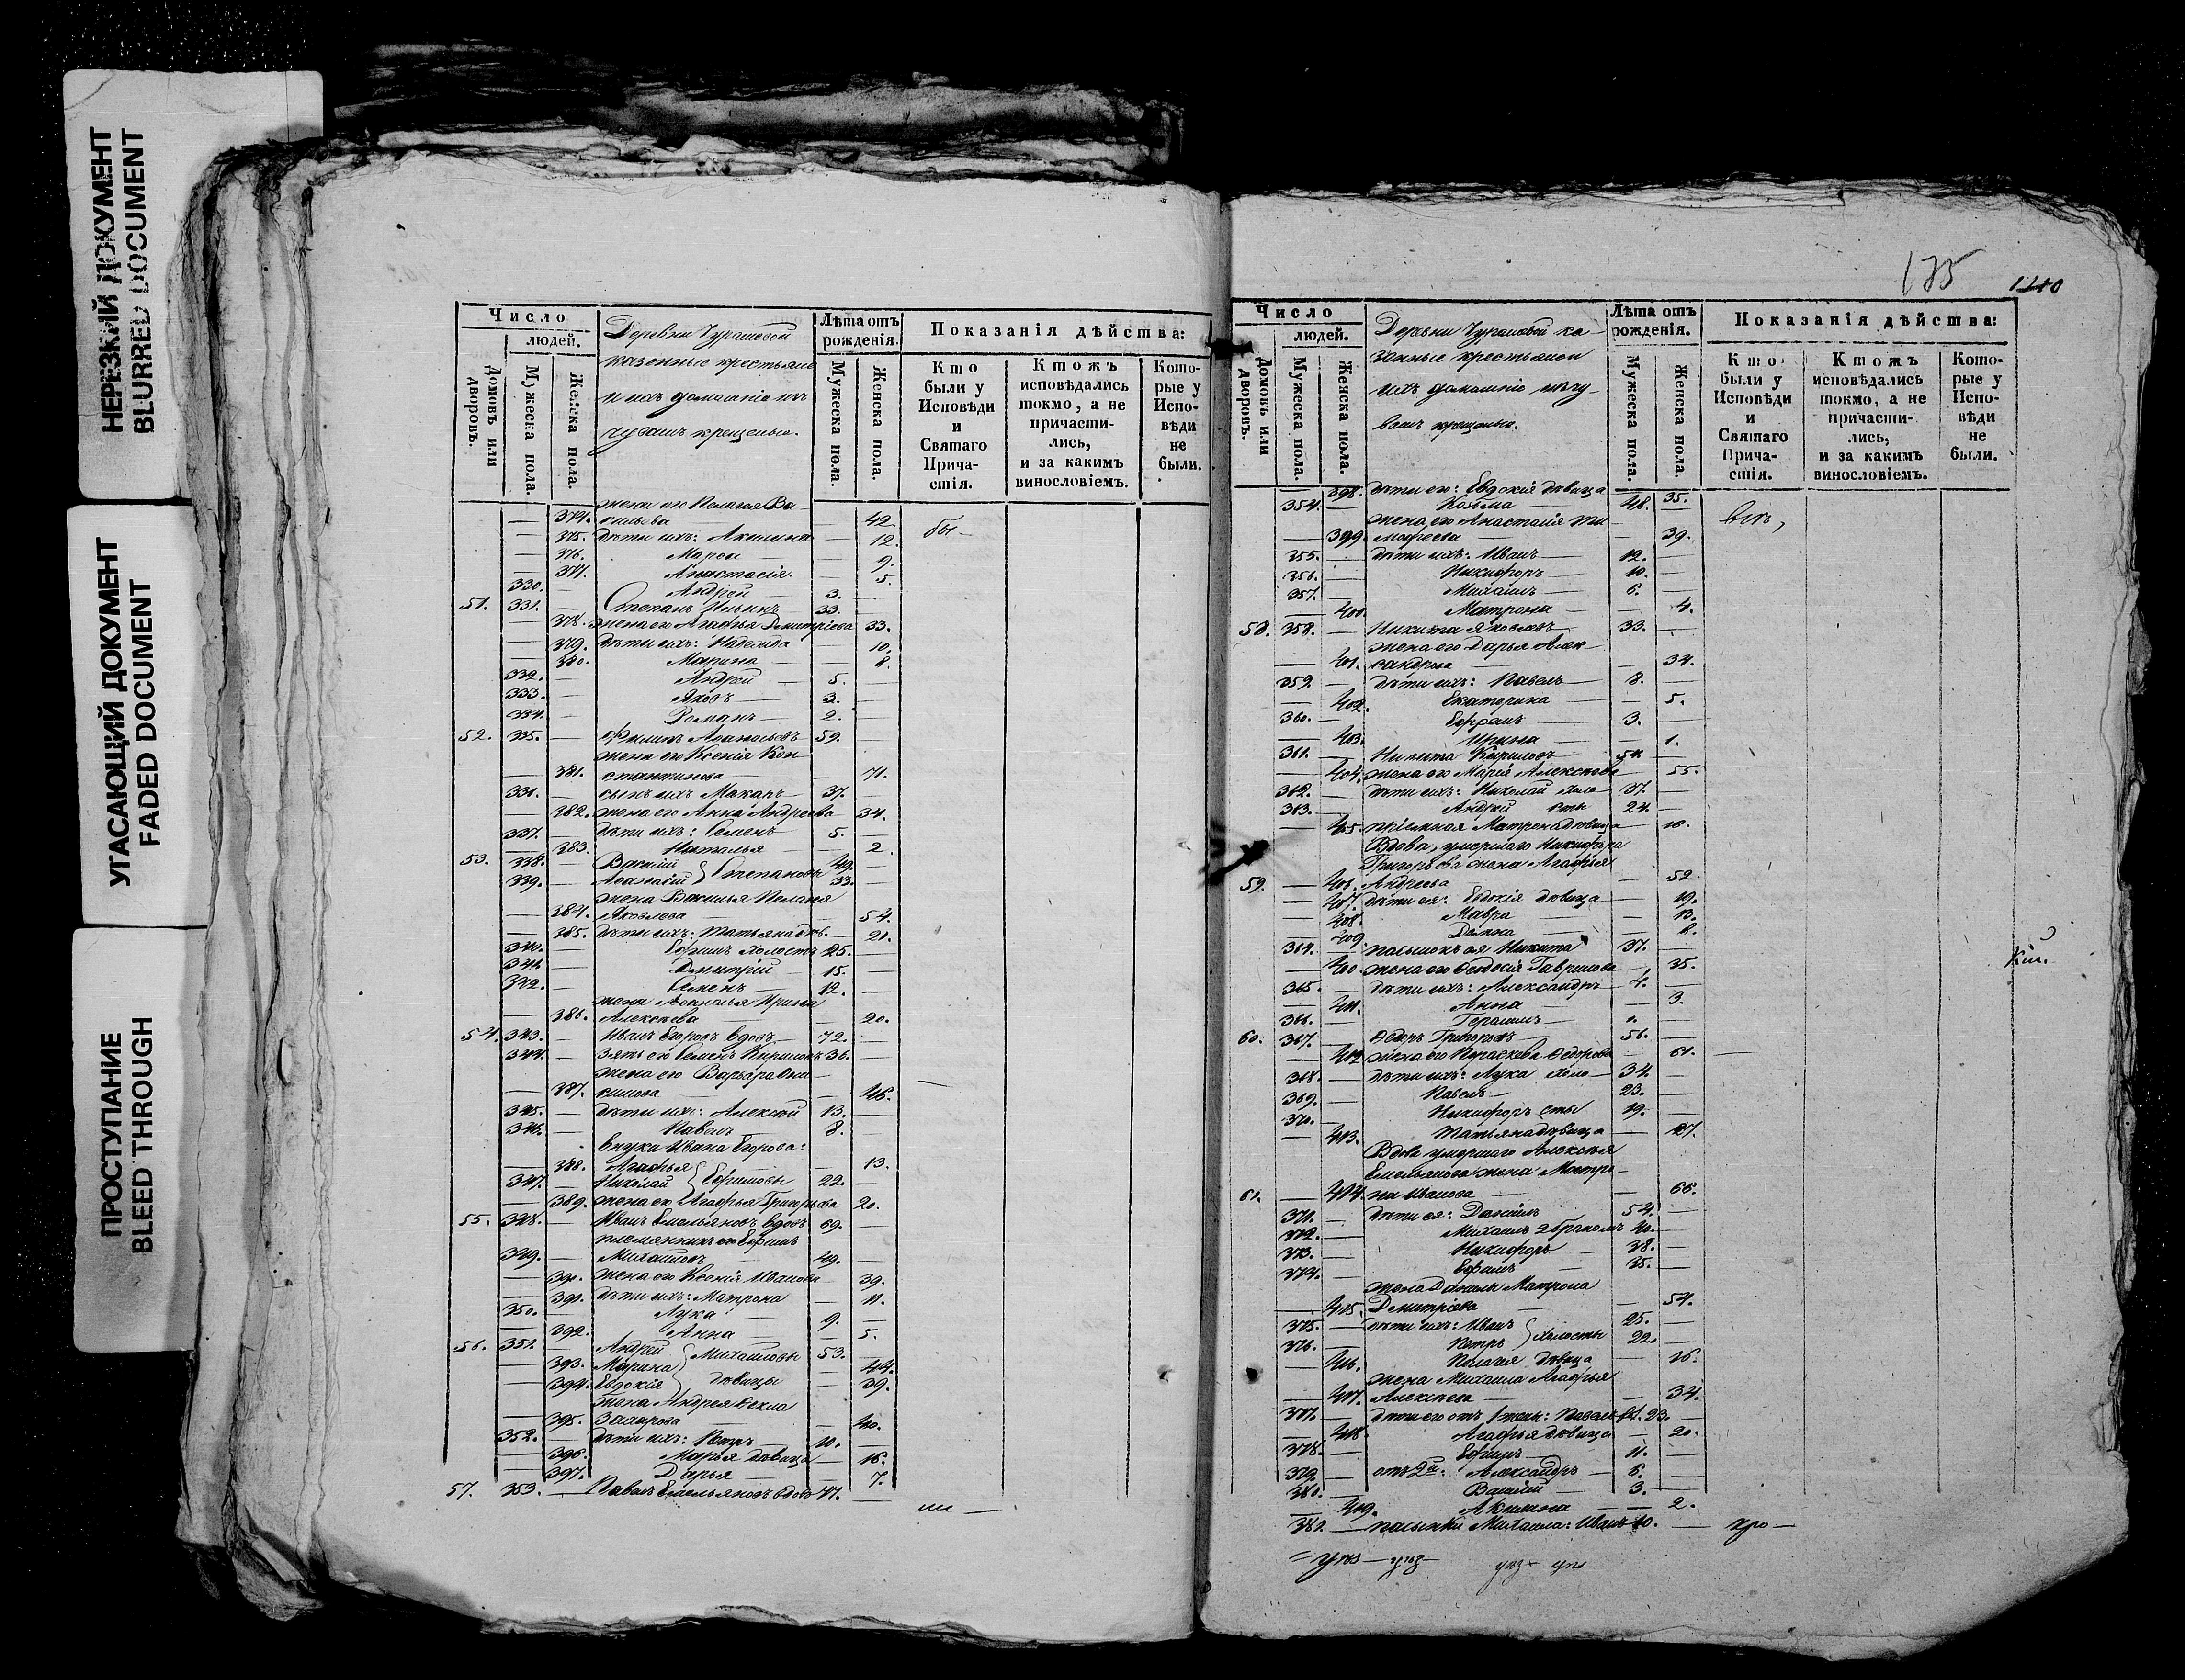 НЕРЕЗКИЙ ДОКУМЕНТ
BLURRED DOCUMENT
УГАСАЮЩИЙ ДОКУМЕНТ
FADED DOCUMENT
ПРОСТУПАНИЕ
BLEED THROUGH
Число
людей.
Домовъ или дворовъ.
Мужеска пола.
Женска пола.
Деревни Чурашевой
казенные крестьяне
и ихъ домашніе изъ
чувашъ крещеные.
Лѣта отъ рожденія.
Мужеска пола.
Женска пола.
Показанія дѣйства:
Кто были у Исповѣди и Святаго Причастія.
Ктожъ исповѣдались токмо, а не причастились, и за какимъ винословіемъ.
Которые у Исповѣди не были.
жена его Пелагея Ва-
374. сильева — 42. бы-
375. дѣти ихъ: Акилина — 12.
376. Марѳа 9.
377. Анастасія — 5.
330. — Андрей — 3. —
51. 331. — Степанъ Ильинъ — 33. —
378. жена его Агафья Дмитріева 33.
379. дѣти ихъ: Надежда — 10.
380. Марина — 8.
332. — Андрей — 5. —
333. — Яковъ — 3. —
334. — Романъ — 2. —
52. 335. — Филипъ Аѳанасьевъ 59. —
жена его Ксенія Кон
381. стантинова — 71.
336. — сынъ ихъ Макаръ — 37. —
382. жена его Анна Андреева 34.
337. — дѣти ихъ: Семенъ 5. —
383. Наталья — 2
53. 338. — Василій } Степановы 49. —
339. — Аѳанасій 33. —
жена Василья Пелагея
384. Яковлева — 54.
385. дѣти ихъ: Татьяна дѣв. — 21.
340. — Ефимъ холостъ 25. —
341. — Дмитрій — 15. —
342. — Семенъ — 12. —
жена Аѳанасья Ирина
386. Алексѣева — 20.
54. 343. — Иванъ Егоровъ вдовъ 72. —
344. — Зять его Семенъ Кириловъ 36. —
жена его Варвара
387. 46.
345. — дѣти ихъ: Алексѣй 13. —
346. — Павелъ — 8. —
внуки Ивана Егорова:
388. Агафья } Ефимовы — 13.
347. — Николай 22. —
389. жена его Агафья Григорьева 20.
55. 348. — Иванъ Емельяновъ вдовъ 69. —
племянникъ его Ефимъ
349. — Михайловъ 49. —
390. жена его Ксенія Иванова — 39.
391. дѣти ихъ: Матрона — 11.
350. — Лука — 9. —
392. Анна — 5.
56. 351. — Андрей } Михайловы 53. —
393. Марина } дѣвицы — 44.
394. Евдокія — 39.
жена Андрея Ѳекла
395. Захарова — 40.
352. — дѣти ихъ: Петръ — 10. —
396. Марья дѣвица — 16.
397. Дарья — 7.
57. 353. — Павелъ Емельяновъ вдовъ 77. —
ли —
175
1210
Число
людей.
Домовъ или дворовъ.
Мужеска пола.
Женска пола.
Деревни Чурашовой ка-
зенные крестьяне и
ихъ домашніе изъ чу-
вашъ крещеные.
Лѣта отъ рожденія.
Мужеска пола.
Женска пола.
Показанія дѣйства:
Кто были у Исповѣди и Святаго Причастія.
Ктожъ исповѣдались токмо, а не причастились, и за какимъ винословіемъ.
Которые у Исповѣди не были.
398. дѣти его: Евдокія дѣвица 35.
354. — Козьма — 48. —
жена его Анастасія Ти-
399 мофеева — 39.
355. — дѣти ихъ: Иванъ — 12. —
356. — Никифоръ — 10. —
357. — Михаилъ — 6. —
400. Матрона — 4.
58. 358. — Никита Яковлевъ — 33. —
жена его Дарья Алек
401. сандрова — 34.
359 — дѣти ихъ: Павелъ — 8. —
402. Екатерина — 5.
360. — Ефремъ — 3. —
403. Ирина — 1.
361. — Никита Кириловъ — 54. —
404. жена его Марія Алексѣева — 55.
362. — дѣти ихъ: Николай холо- 37. —
363. — Андрей сты 24. —
405. пріемная Матрона дѣвица 16.
Вдова, умершаго Никифора
Григорьева жена Агафья
59. 406. Андреева — 52.
407. дѣти ея: Евдокія дѣвица — 19.
408. Мавра — 13.
409. Домна —
364. — пасынокъ ея Никита 37. —
410. жена его Ѳеодосія Гаврилова — 35.
365. — дѣти ихъ: Александръ —
411. Анна — 3.
366. — Герасимъ —
60. 367. — Ѳедоръ Григорьевъ 56. —
412 жена его Параскева Ѳедорова 61.
368. — дѣти ихъ: Лука холо- 34. —
369. — Павелъ — 23. —
370. — Никифоръ сты 19. —
413. Татьяна дѣвица — 27.
Вдова умершаго Алексѣя
Емельянова жена Матро-
61. 414. на Иванова — 66.
371. — дѣти ея: Данилъ 54. —
372. — Михаилъ 2 бракомъ 40. —
373. — Никифоръ — 38. —
374. — Ефимъ — 35. —
жена Данилы Матрона
415. Дмитріева — 54.
375. — дѣти ихъ: Иванъ } холосты 25. —
376. — Петръ 22. —
416. Пелагея дѣвица — 16.
жена Михаила Агафья
417. Алексѣева — 34.
377. — дѣти его отъ 1 жен: Павелъ 23. —
418. Агафья дѣвица — 20.
378. — Ефимъ — 11. —
379. — отъ 2й: Александръ — 6. —
380. — Василій — 3. —
419. Акилина — 2.
381. — пасынки Михаила: Иванъ 10. —